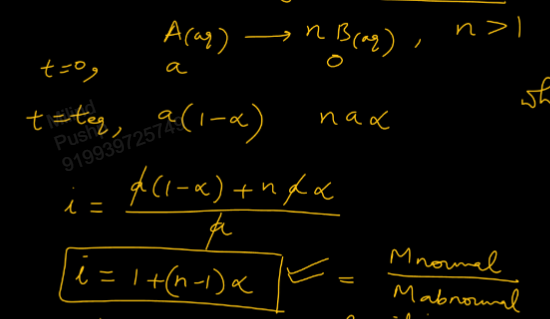 A(aq) → n B(aq) , n > 1
t=0, a 0
t = teq, a(1-α) n a α
Pushp
i = a(1-α) + n a α / a
i = 1 + (n-1) α ✓ = Mnormal / Mabnormal